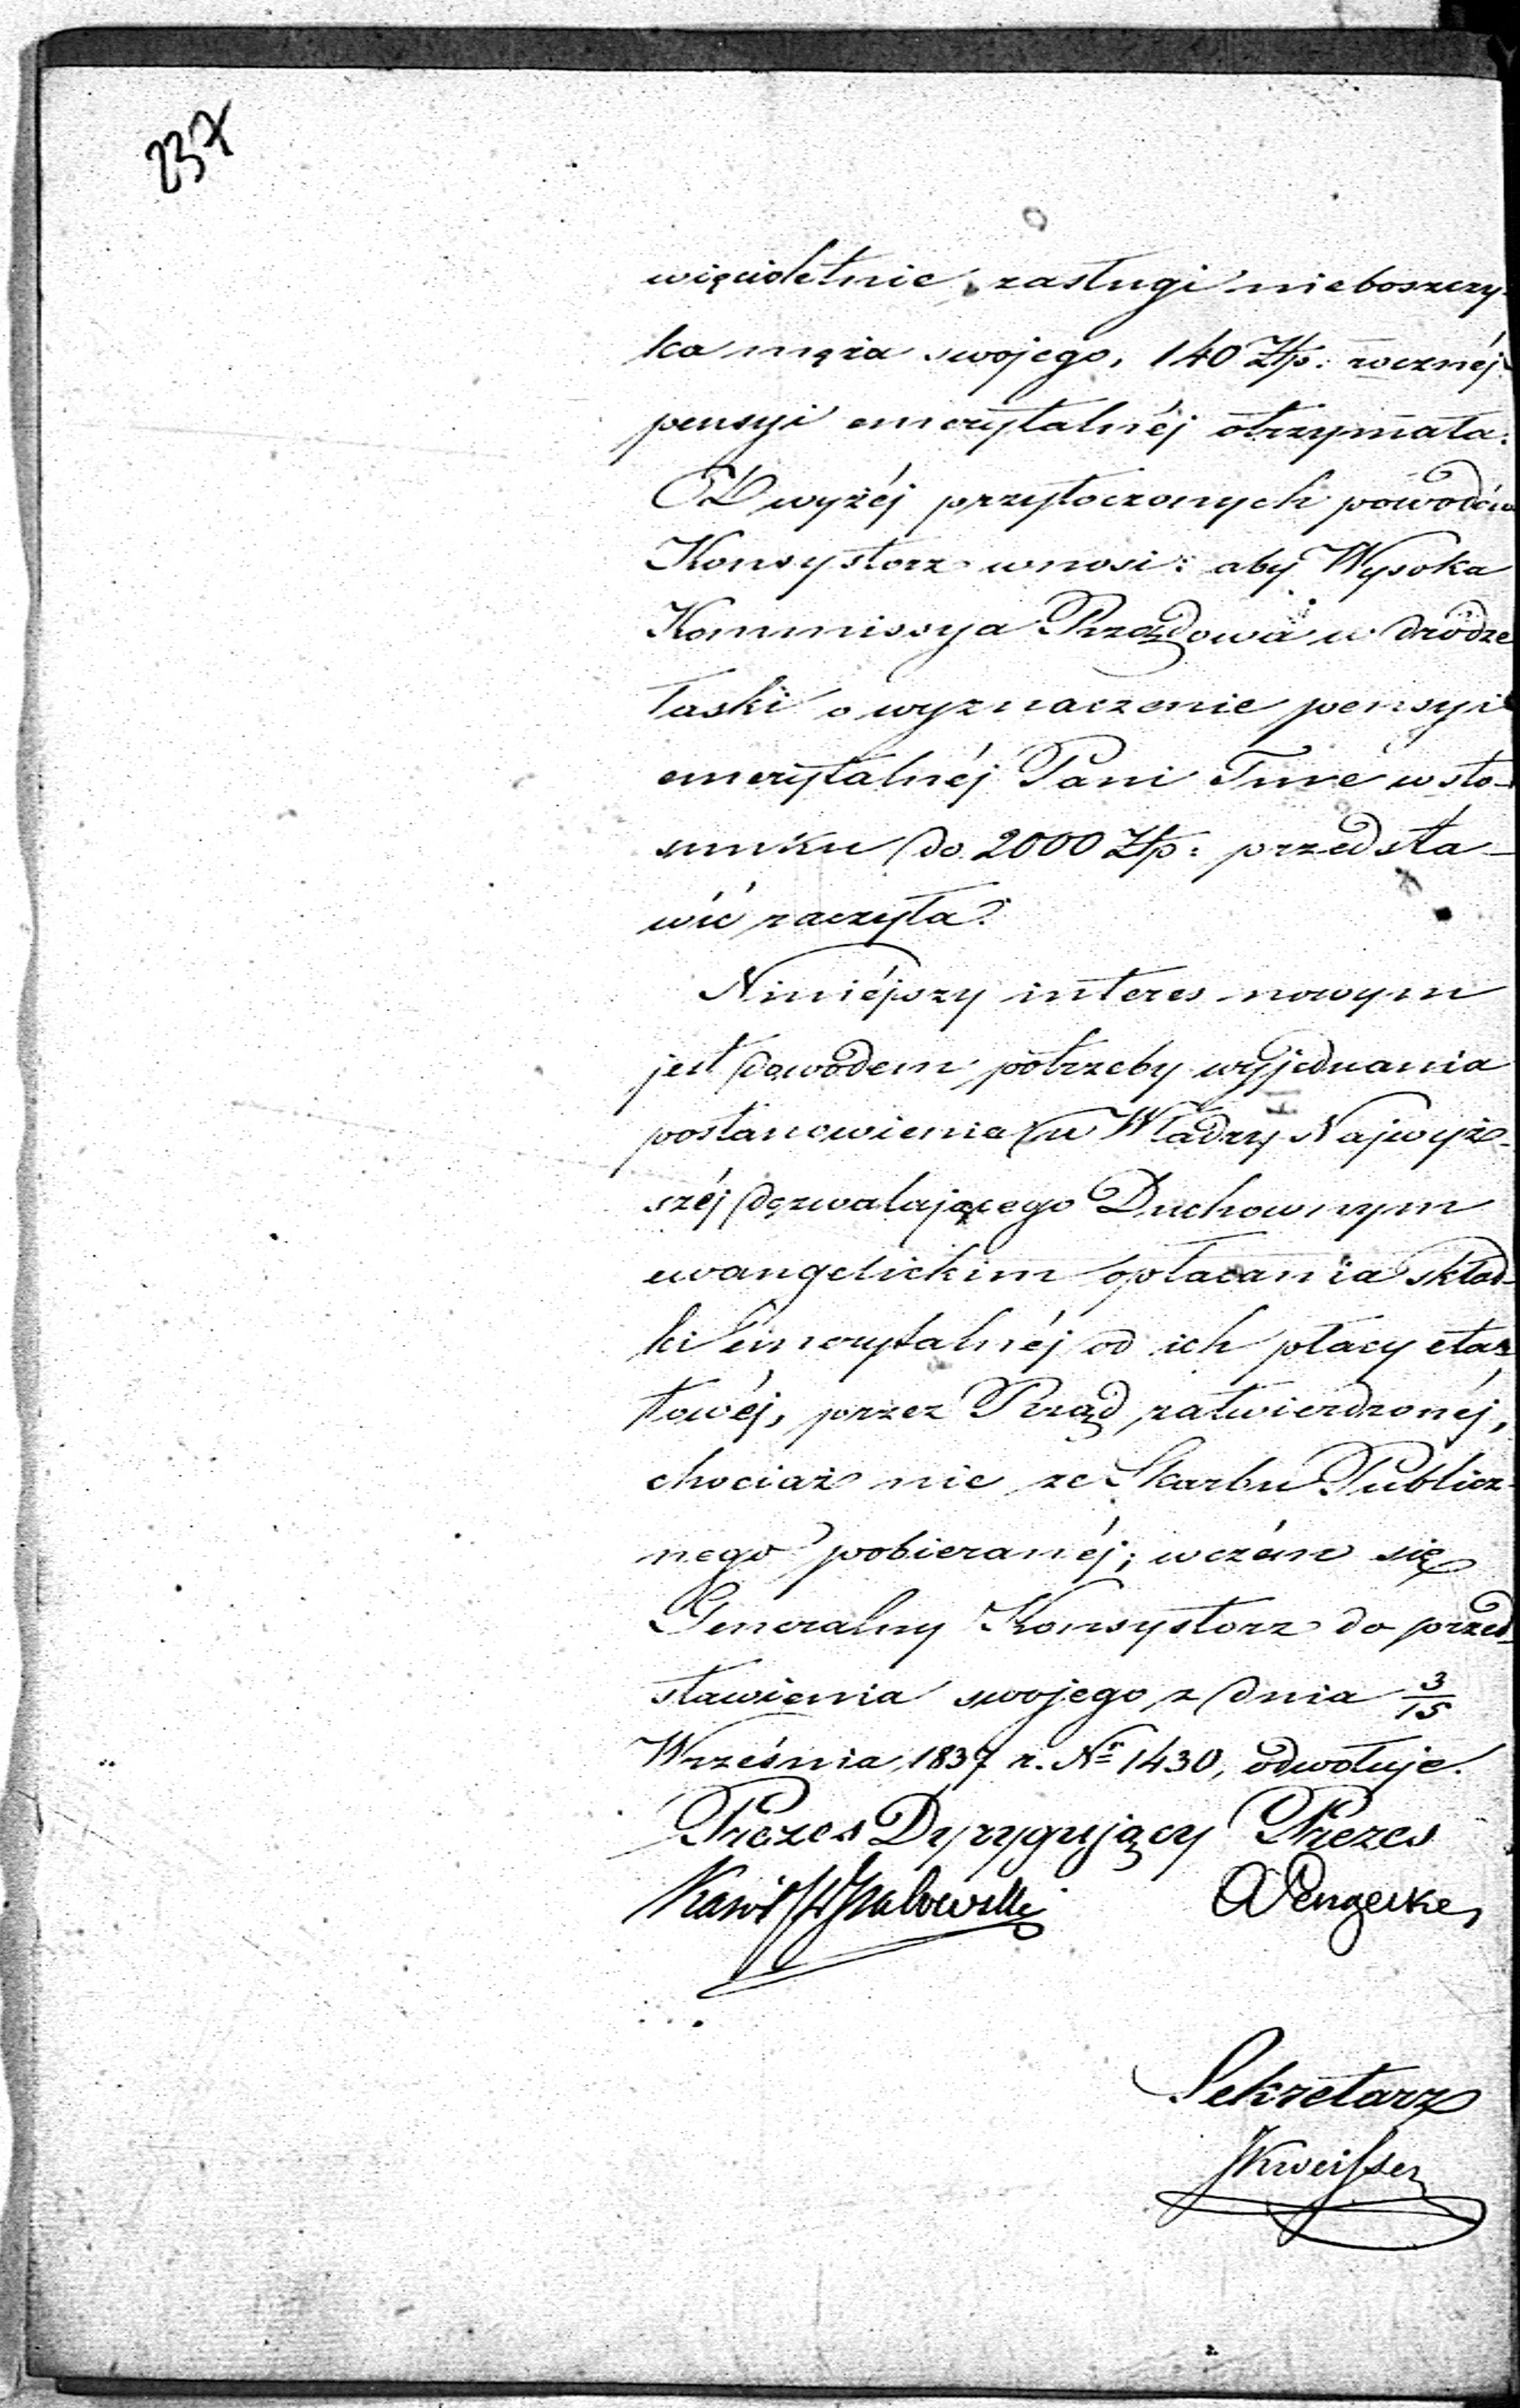 237
więcioletnie zasługi nieboszczy-
ka męża swojego, 140 Złp: rocznéj
pensyi emerytalnéj otrzymała.
Od wyżéj przytoczonych powodów
Konsystorz wnosi: aby Wysoka
Kommissya Rządowa w drodze
łaski o wyznaczenie pensyi
emerytalnéj Pani Tuve w sto-
sunku do 2000 Złp: przedsta-
wić raczyła.
Niniéjszy interes nowym
jest dowodem potrzeby wyjednania
postanowienia u Władzy Najwyż-
széj dozwalającego Duchownym
ewangelickim opłacania skład-
ki emerytalnéj od ich płacy eta-
towéj, przez Rząd zatwierdzonéj,
chociaż nie ze Skarbu Publicz-
nego pobieranéj; w czém się
Generalny Konsystorz do przed-
stawienia swojego z dnia 3/15
Września 1837 r. Nr 1430, odwołuje.
Prezes Dyrygujący Prezes
AWengerke
Sekretarz